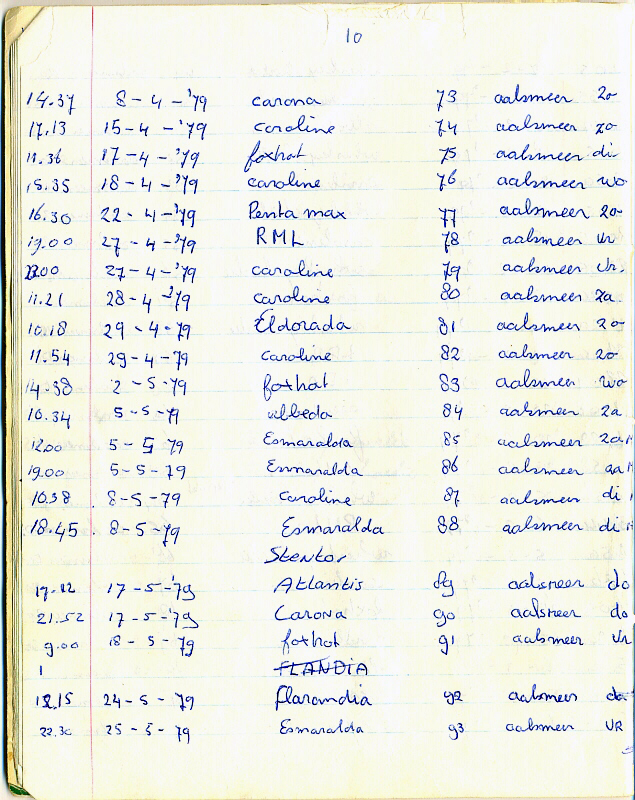 10
14.37 8-4-'79 carona 73 aalsmeer zo
17.13 15-4-'79 caroline 74 aalsmeer zo
11.36 17-4-'79 foxhat 75 aalsmeer di
15.35 18-4-'79 caroline 76 aalsmeer wo
16.30 22-4-'79 Penta max 77 aalsmeer zo
19.00 27-4-'79 RML 78 aalsmeer vr
27-4-'79 caroline 79 aalsmeer vr.
11.21 28-4-'79 caroline 80 aalsmeer za
10.18 29-4-79 Eldorada 81 aalsmeer zo
11.54 29-4-79 caroline 82 aalsmeer zo
14.38 2-5-79 foxhat 83 aalsmeer wo
10.34 5-5-79 84 aalsmeer za
12.00 5-5-79 Esmaralda 85 aalsmeer za
19.00 5-5-79 Esmaralda 86 aalsmeer
10.38 8-5-79 Caroline 87 aalsmeer di
18.45 8-5-79 Esmaralda 88 aalsmeer di
Stentor
17.12 17-5-'79 Atlantis 89 aalsmeer do
21.52 17-5-'79 Carona 90 aalsmeer do
9.00 18-5-79 foxhat 91 aalsmeer vr
1 FLANDIA
24-5-79 flarandia 92 aalsmeer do
22.30 25-5-79 Esmaralda 93 aalsmeer VR